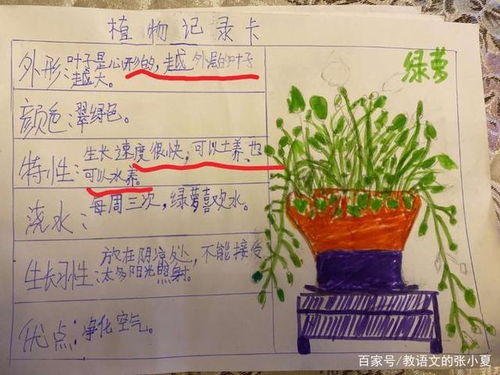 植物记录卡
外形:叶子是心形的,越外层的叶子
越大。
颜色:翠绿色。
特性:生长速度很快,可以土养,也
可以水养。
浇水:每周三次,绿萝喜欢水。
生长习性:放在阴凉处,不能接受
太多阳光照射。
优点:净化空气。
绿萝
百家号/教语文的张小夏